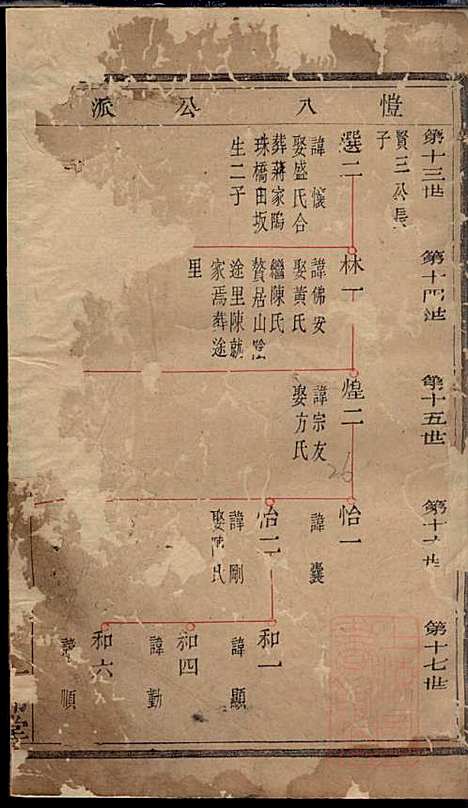 愷八公派
第十三世
選二
賢三公長
子
諱懷
娶盛氏合
葬蔣家塢
珠橋田坂
生二子
第十四世
林一
諱佛安
娶黃氏
繼陳氏
贅居山
途里陳就
家焉葬途
里
第十五世
煌二
諱宗友
娶方氏
26
第十六世
怡一
諱囊
怡二
諱剛
娶陳氏
第十七世
和一
諱顯
和四
諱勤
和六
諱順
堂